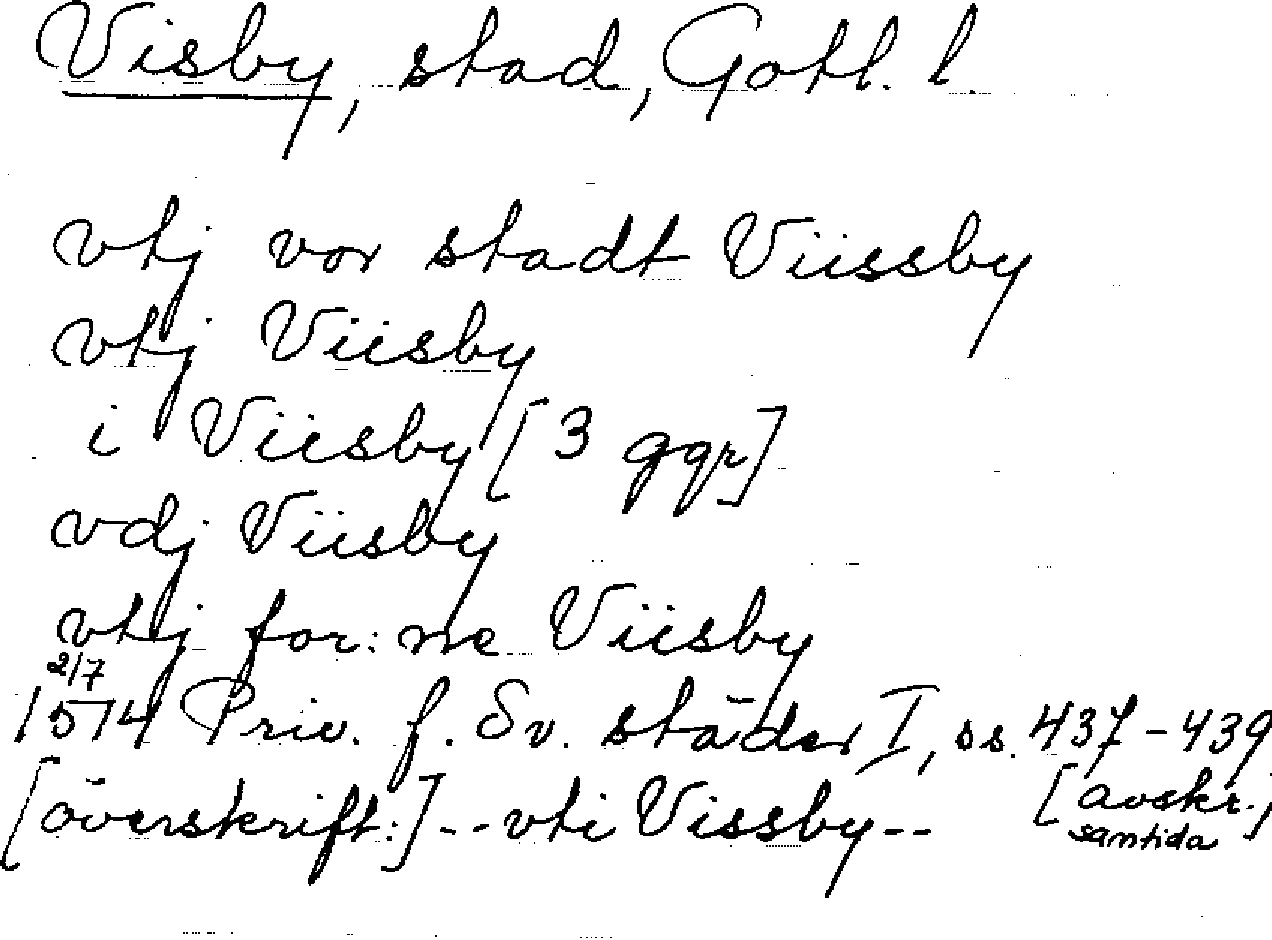 Visby, stad, Gotl. l.
vtj vor stadt Viissby
vtj Viisby
i Viisby [3 ggr]
vdj Viisby
vtj for:ne Viisby
2/7
1574 Priv. f. Sv. städer I, ss. 437-439
[överskrift:] -- vti Vissby -- [avskr.,
samtida